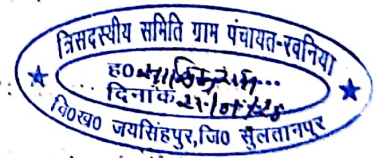 त्रिसदस्यीय समिति ग्राम पंचायत-रवनिया
ह०
दिनांक
वि०ख० जयसिंहपुर,जि० सुलतानपुर